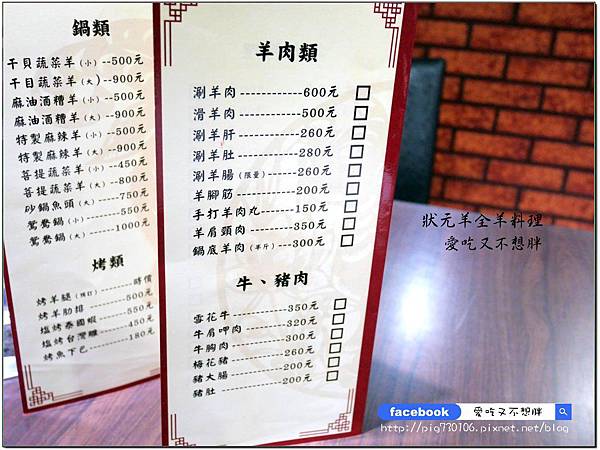 鍋類
干貝蔬菜羊(小)--500元
干目蔬菜羊(大)--900元
麻油酒糟羊(小)--500元
麻油酒糟羊(大)--900元
特製麻辣羊(小)--500元
特製麻辣羊(大)--900元
菩提蔬菜羊(小)--450元
菩提蔬菜羊(大)--800元
砂鍋魚頭(大)----750元
鴛鴦鍋(小)-------550元
鴛鴦鍋(大)------1000元
烤類
烤羊腿(預訂)-------時價
烤羊肋排----------500元
塩烤泰國蝦------550元
塩烤台灣鯛------450元
烤魚下巴---------180元
羊肉類
涮羊肉------------600元 □
滑羊肉------------500元 □
涮羊肝-----------260元 □
涮羊肚-----------280元 □
涮羊腸(限量)-----260元 □
羊腳筋-----------200元 □
手打羊肉丸------150元 □
羊肩頸肉--------350元 □
鍋底羊肉(半斤)---300元 □
牛、豬肉
雪花牛----------350元 □
牛肩呷肉-------320元 □
牛胸肉----------300元 □
梅花豬----------260元 □
豬大腸----------200元 □
豬肚------------200元 □
狀元羊全羊料理
愛吃又不想胖
facebook 愛吃又不想胖
http://pig770106.pixnet.net/blog